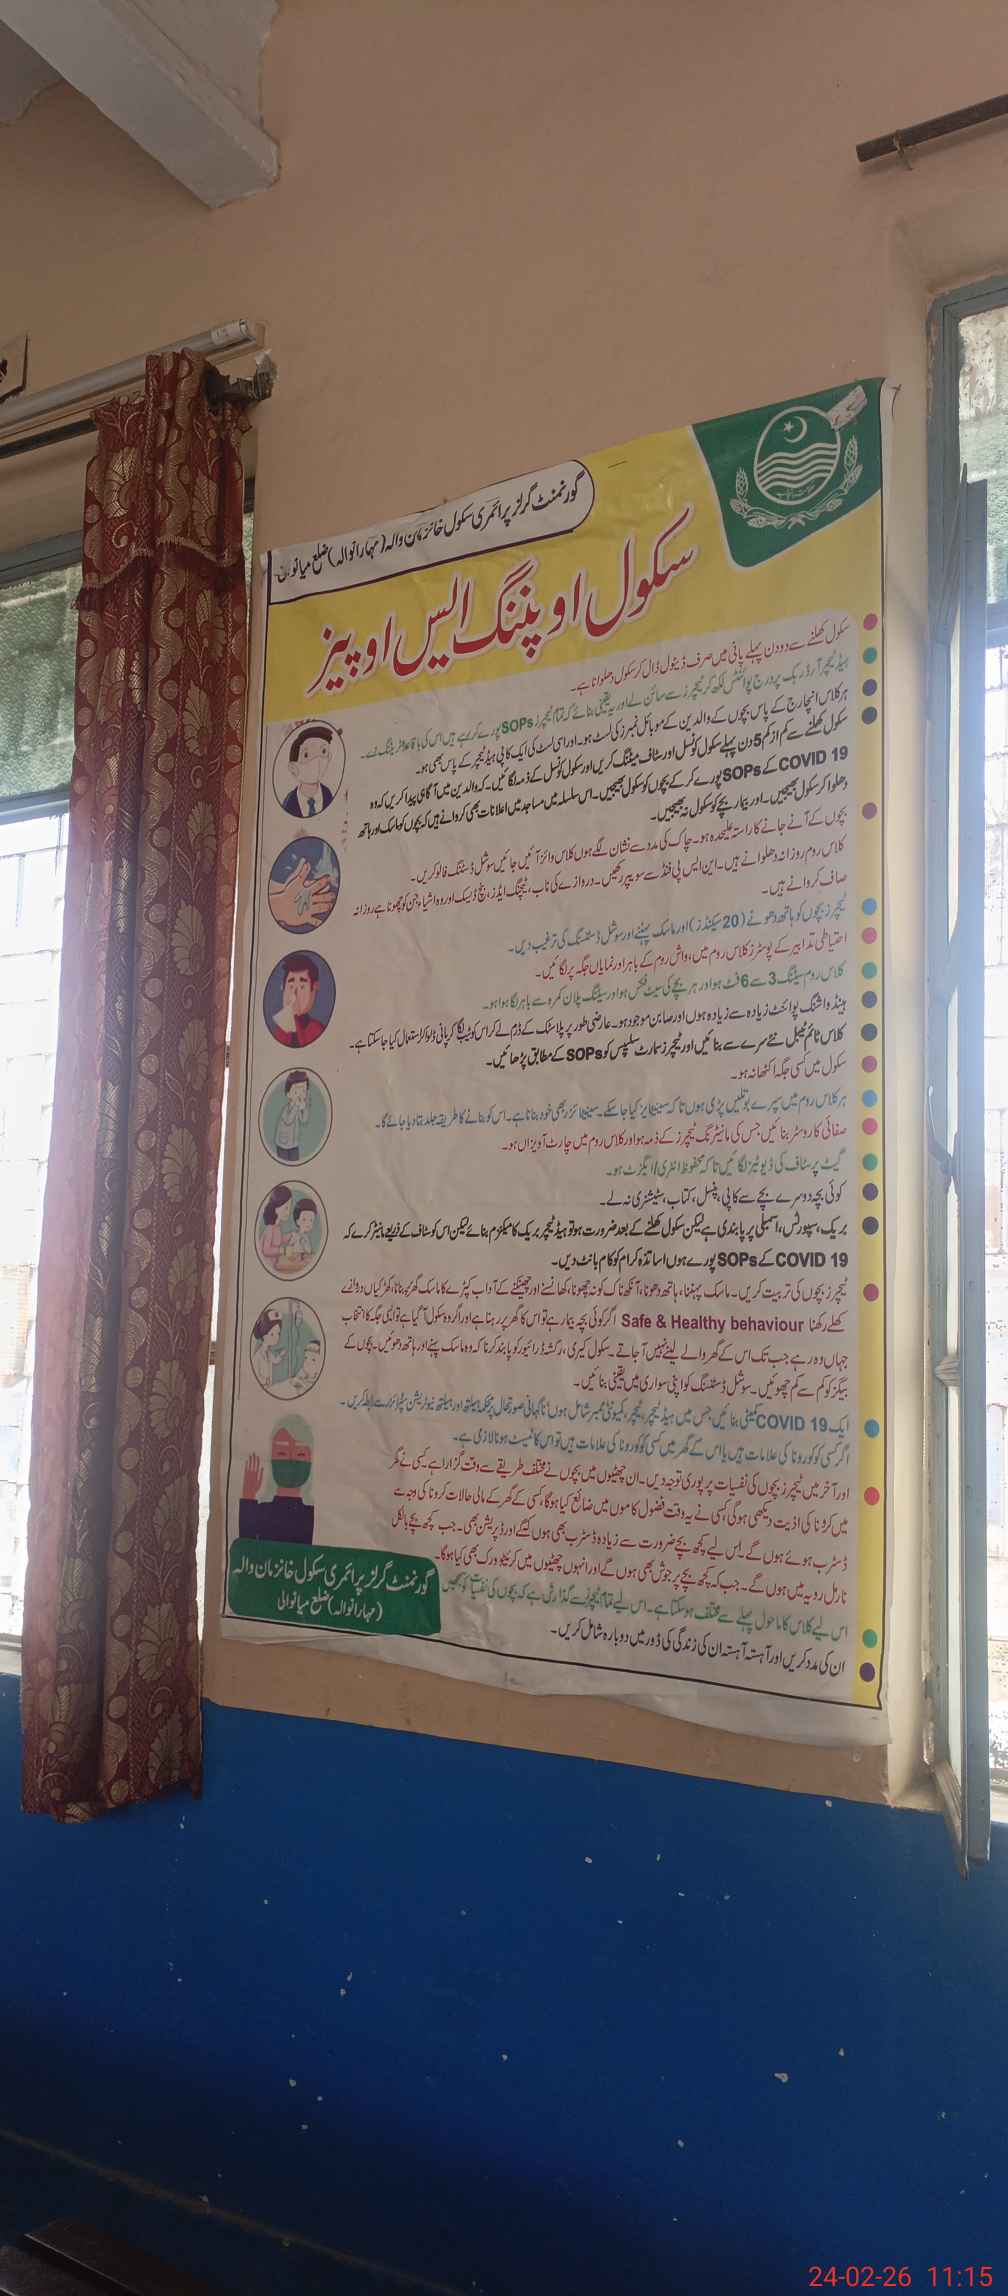 گورنمنٹ گرلز پرائمری سکول خانزمان والہ (مہارانوالہ) ضلع میانوالی
سکول اوپننگ ایس او پیز
سکول کھلنے سے دو دن پہلے پانی میں صرف ڈیٹول ڈال کر سکول دھلوانا ہے۔
ہیڈ ٹیچر آرڈر بک پر درج پوائنٹس لکھ کر ٹیچرز سے سائن لے اور یہ یقینی بنائے کہ تمام ٹیچرز SOPs پورے کر رہے ہیں اس کی باقاعدہ ٹریننگ لے۔
ہر کلاس انچارج کے پاس بچوں کے والدین کے موبائل نمبرز کی لسٹ ہو۔ اور اسی لسٹ کی ایک کاپی ہیڈ ٹیچر کے پاس بھی ہو۔
سکول کھلنے سے کم از کم 5 دن پہلے سکول کونسل اور سٹاف میٹنگ کریں اور سکول کونسل کے ذمہ لگائیں۔ کہ والدین میں آگاہی پیدا کریں کہ وہ
COVID 19 کے SOPs پورے کر کے بچوں کو سکول بھیجیں۔ اس سلسلہ میں مساجد میں اعلانات بھی کروانے ہیں کہ بچوں کو ماسک اور ہاتھ
دھلوا کر سکول بھیجیں۔ اور بیمار بچے کو سکول نہ بھیجیں۔
بچوں کے آنے جانے کا راستہ علیحدہ ہو۔ چاک کی مدد سے نشان لگے ہوں کلاس وائز آئیں جائیں سوشل ڈسٹنگ فالو کریں۔
کلاس روم روزانہ دھلوانے ہیں۔ این ایس بی فنڈ سے سویپر رکھیں۔ دروازے کی ناب، ٹیچنگ ایڈز، بنچ ڈیسک اور وہ اشیاء جن کو چھونا ہے روزانہ
صاف کروانے ہیں۔
ٹیچرز بچوں کو ہاتھ دھونے (20 سیکنڈز) اور ماسک پہننے اور سوشل ڈسٹنسنگ کی ترغیب دیں۔
احتیاطی تدابیر کے پوسٹرز کلاس روم میں، واش روم کے باہر اور نمایاں جگہ پر لگائیں۔
کلاس روم سیٹنگ 3 سے 6 فٹ ہو اور ہر بچے کی سیٹ فکس ہو اور سیٹنگ پلان کمرہ سے باہر لگا ہوا ہو۔
ہینڈ واشنگ پوائنٹ زیادہ سے زیادہ ہوں اور صابن موجود ہو۔ عارضی طور پر پلاسٹک کے ڈرم لے کر اس کو ٹیپ لگا کر پانی ڈلوا کر استعمال کیا جا سکتا ہے۔
کلاس ٹائم ٹیبل نئے سرے سے بنائیں اور ٹیچرز سمارٹ سلیبس کو SOPs کے مطابق پڑھائیں۔
سکول میں کسی جگہ اکٹھا نہ ہو۔
ہر کلاس روم میں سپرے بوتلیں پڑی ہوں تاکہ سینیٹائیز کیا جا سکے۔ سینیٹائزر بھی خود بنانا ہے۔ اس کو بنانے کا طریقہ جلد بتا دیا جائے گا۔
صفائی کا روسٹر بنائیں جس کی مانیٹرنگ ٹیچرز کے ذمہ ہو اور کلاس روم میں چارٹ آویزاں ہو۔
گیٹ پر سٹاف کی ڈیوٹیز لگائیں تاکہ محفوظ انٹری/ایگزٹ ہو۔
کوئی بچہ دوسرے بچے سے کاپی، پنسل، کتاب، سٹیشنری نہ لے۔
بریک، سپورٹس، اسمبلی پر پابندی ہے لیکن سکول کھلنے کے بعد ضرورت ہو تو ہیڈ ٹیچر بریک کا میکنزم بنائے لیکن اس کو سٹاف کے ذریعے مانیٹر کرے کہ
COVID 19 کے SOPs پورے ہوں اساتذہ کرام کو کام بانٹ دیں۔
ٹیچرز بچوں کی تربیت کریں۔ ماسک پہننا، ہاتھ دھونا، آنکھ ناک کو نہ چھونا، کھانسنے اور چھینکنے کے آداب کپڑے کا ماسک گھر پہ بنانا، کھڑکیاں دروازے
کھلے رکھنا Safe & Healthy behaviour اگر کوئی بچہ بیمار ہے تو اس کا گھر پر رہنا ہے اور اگر وہ سکول آ گیا ہے تو ایسی جگہ کا انتخاب
جہاں وہ رہے جب تک اس کے گھر والے لینے نہیں آ جاتے۔ سکول کیری، رکشہ ڈرائیور کو پابند کرنا کہ وہ ماسک پہنے اور ہاتھ دھوئیں۔ بچوں کے
بیگز کو کم سے کم چھوئیں۔ سوشل ڈسٹنسنگ کو اپنی سواری میں یقینی بنائیں۔
ایک COVID 19 کمیٹی بنائیں جس میں ہیڈ ٹیچر، ٹیچر، کمیونٹی ممبر شامل ہوں ناگہانی صورتحال پر محکمہ ہیلتھ اور ہیلتھ نیوٹریشن سپروائزر سے رابطہ کریں۔
اگر کسی کو کورونا کی علامات ہیں یا اس کے گھر میں کسی کو کورونا کی علامات ہیں تو اس کا ٹیسٹ ہونا لازمی ہے۔
اور آخر میں ٹیچرز بچوں کی نفسیات پر پوری توجہ دیں۔ ان چھٹیوں میں بچوں نے مختلف طریقے سے وقت گزارا ہے کسی نے گھر
میں کرونا کی اذیت دیکھی ہو گی، کسی نے یہ وقت فضول کاموں میں ضائع کیا ہو گا، کسی کے گھر کے مالی حالات کرونا کی وجہ سے
ڈسٹرب ہوئے ہوں گے۔ اس لیے کچھ بچے ضرورت سے زیادہ ڈسٹرب بھی ہوں گے اور ڈپریشن بھی۔ جب کچھ بچے بالکل
نارمل رویہ میں ہوں گے۔ جب کہ کچھ بچے پر جوش بھی ہوں گے اور انہوں چھٹیوں میں کریٹیو ورک بھی کیا ہو گا۔
اس لیے کلاس کا ماحول پہلے سے مختلف ہو سکتا ہے۔ اس لیے تمام ٹیچرز سے گذارش ہے کہ بچوں کی نفسیات کو سمجھیں
ان کی مدد کریں اور آہستہ آہستہ ان کی زندگی کی دوڑ میں دوبارہ شامل کریں۔
گورنمنٹ گرلز پرائمری سکول خانزمان والہ
(مہارانوالہ) ضلع میانوالی
24-02-26 11:15